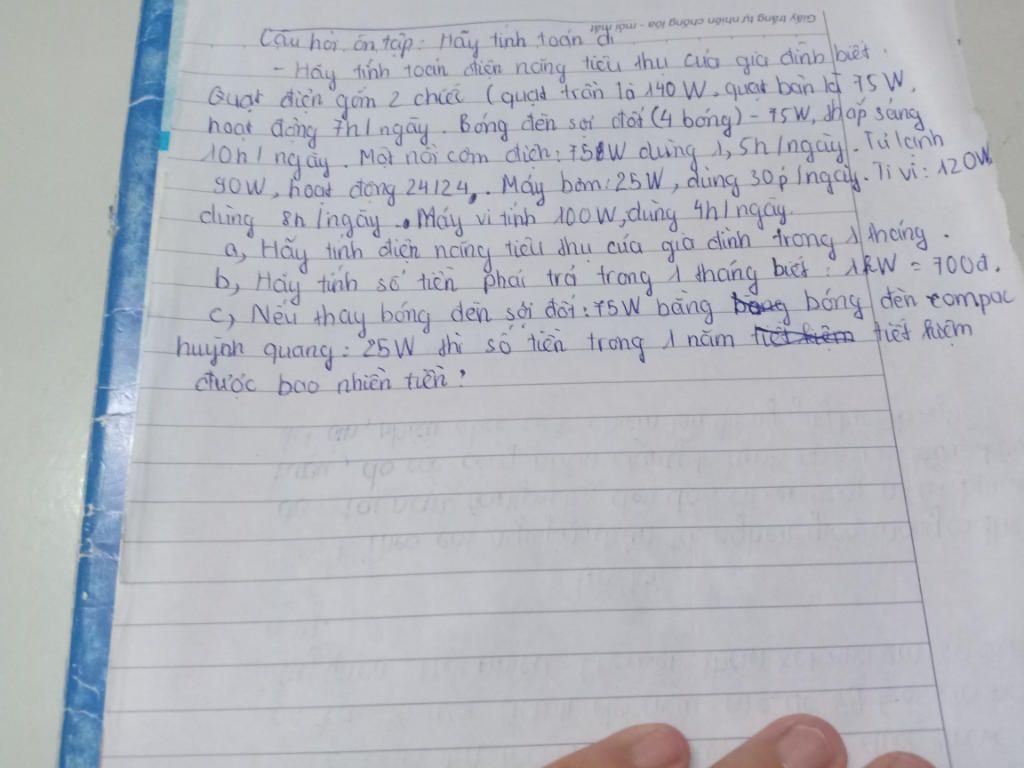 Giấy trắng tự nhiên chống lóa - mỏi mắt
Câu hỏi ôn tập: Hãy tính toán đi
- Hãy tính toán điện năng tiêu thụ của gia đình biết:
Quạt điện gồm 2 chiếc (quạt trần là 140W, quạt bàn là 75W,
hoạt động 7h/ngày. Bóng đèn sợi đốt (4 bóng) - 75W, thắp sáng
10h/ngày. Một nồi cơm điện: 75W dùng 1,5h/ngày. Tủ lạnh
90W, hoạt động 24/24. Máy bơm: 25W, dùng 30p/ngày. Ti vi: 120W
dùng 8h/ngày. Máy vi tính 100W, dùng 4h/ngày.
a, Hãy tính điện năng tiêu thụ của gia đình trong 1 tháng.
b, Hãy tính số tiền phải trả trong 1 tháng biết: 1kW = 700đ.
c, Nếu thay bóng đèn sợi đốt: 75W bằng bóng đèn compac
huỳnh quang: 25W thì số tiền trong 1 năm tiết kiệm
được bao nhiên tiền?